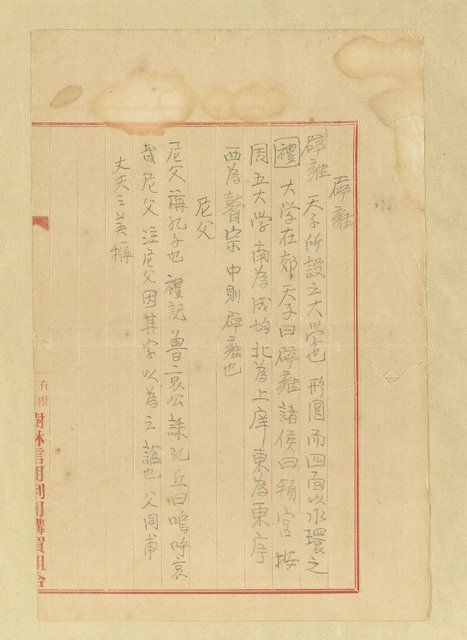 辟雍
辟雍 天子所設立大学也 形圓而四面以水環之
禮 大学在郊 天子曰辟雍 諸侯曰頖宮 按
周五大学 南為成均 北為上庠 東為東序
西為瞽宗 中則辟雍也
尼父
尼父 稱孔子也 禮記 魯哀公誄孔丘曰 嗚呼哀
哉尼父 注尼父因其字以為之諡也 父同甫
丈夫之美稱
樹林信用利用購買組合